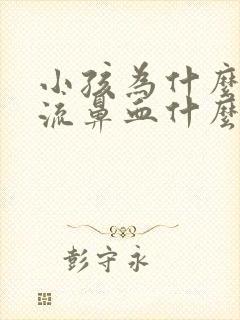 小孩為什麼
流鼻血什麼
彭守永